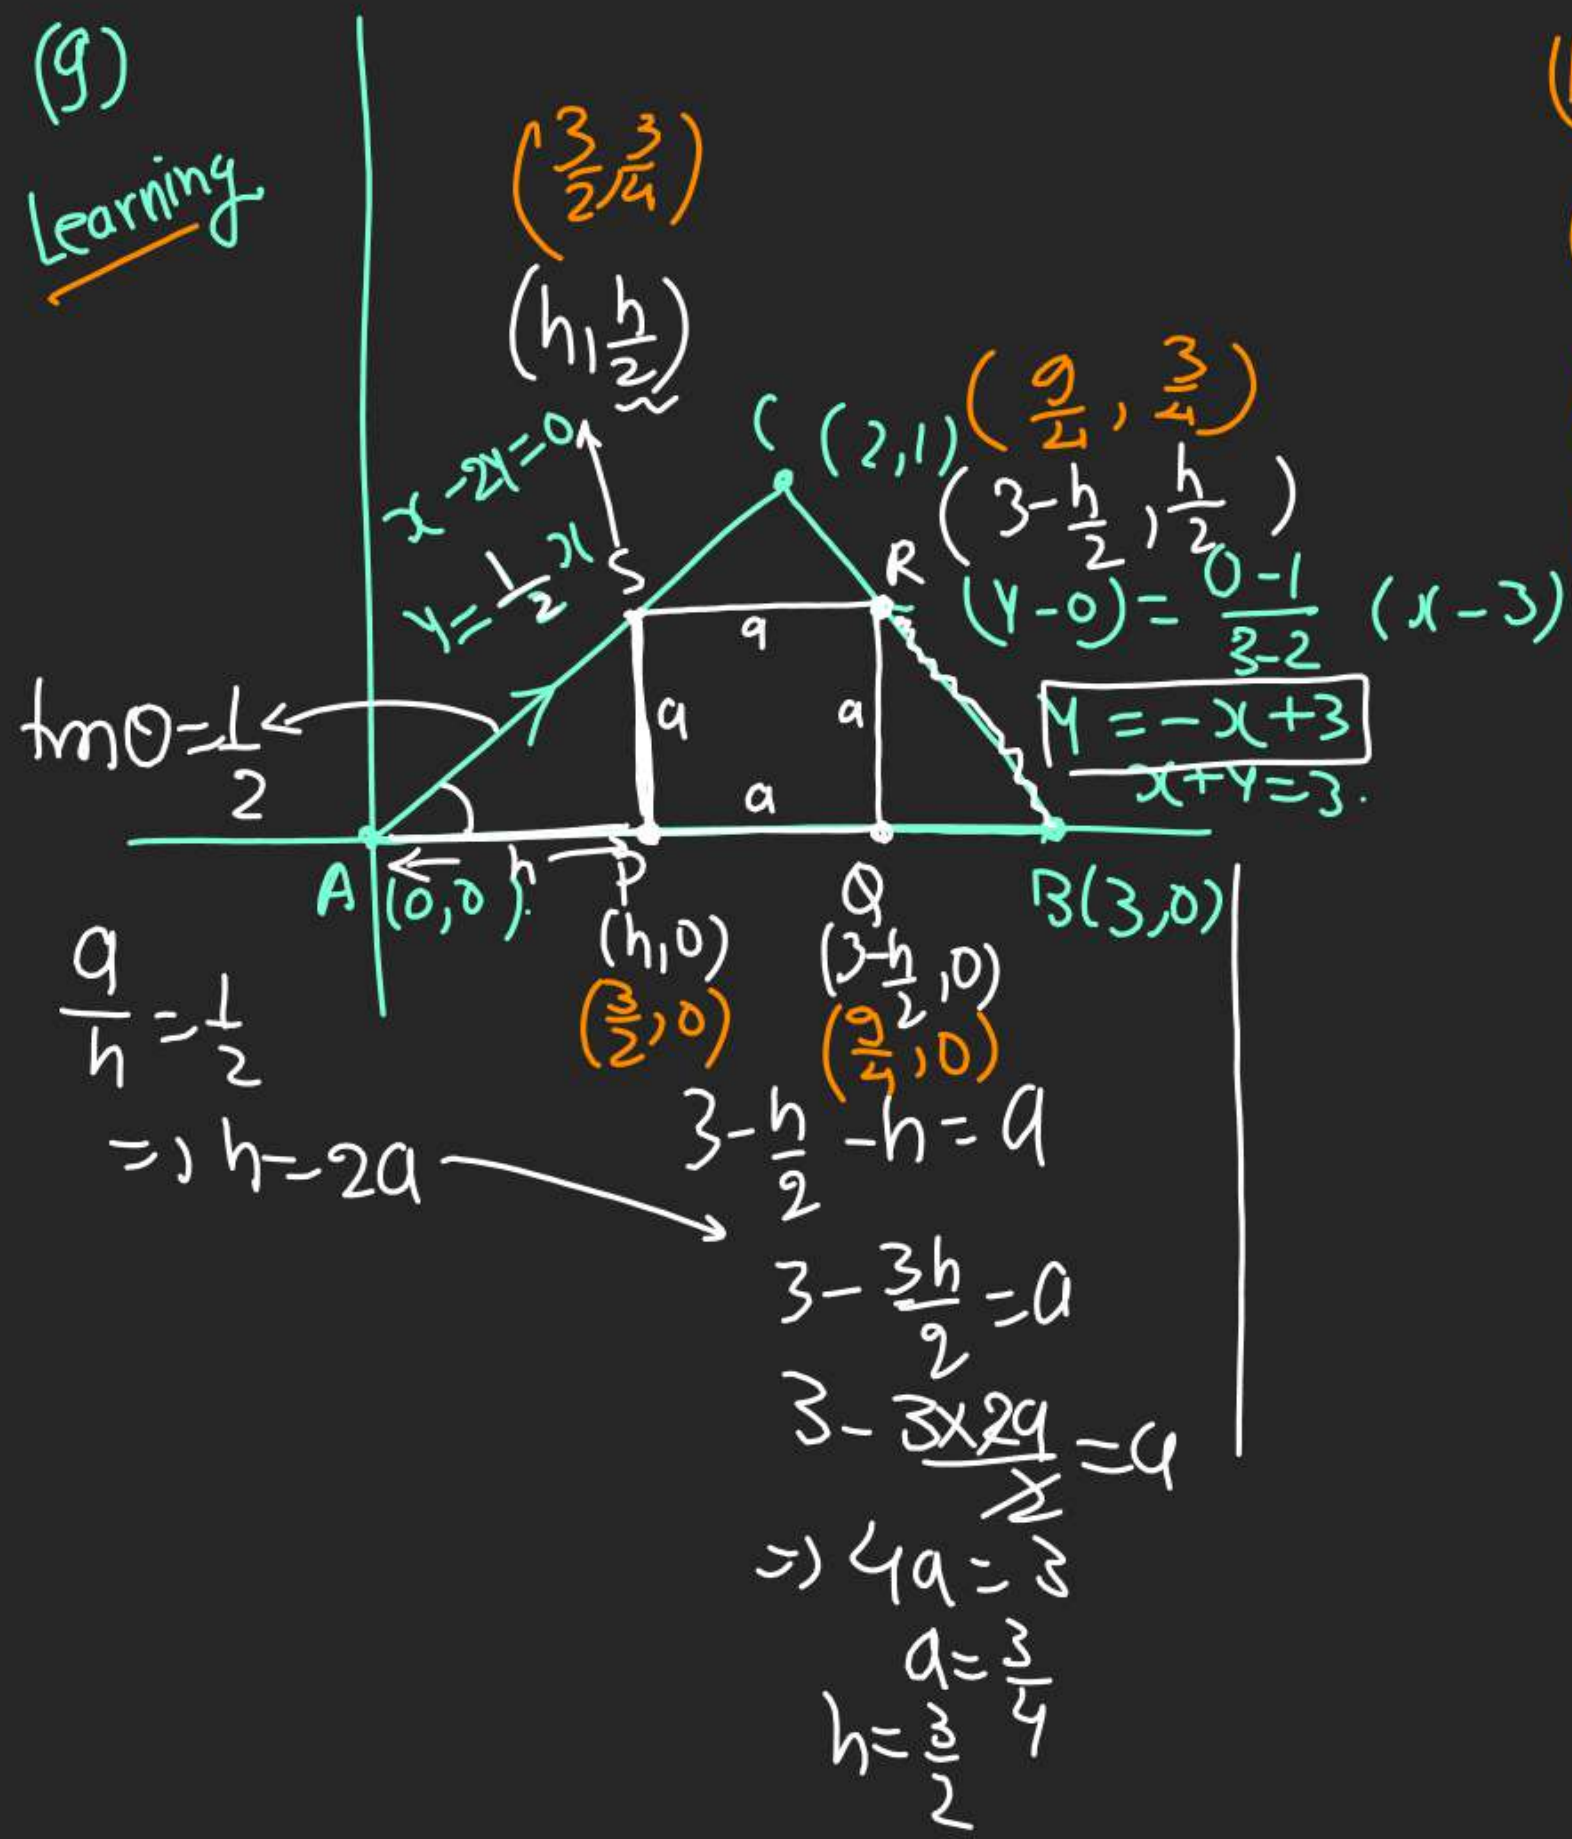 (9)
Learning
(3/2, 3/4)
(h, h/2)
x-2y=0
y = 1/2 x
C (2,1)
(9/4, 3/4)
(3-h/2, h/2)
S
R
(y-0) = 0-1/3-2 (x-3)
y = -x+3
x+y=3.
tanθ = 1/2
a
a
a
a
h
A (0,0).
P
Q
B(3,0)
(h,0)
(3-h/2, 0)
(3/2, 0)
(9/4, 0)
a/h = 1/2
=> h = 2a
3 - h/2 - h = a
3 - 3h/2 = a
3 - 3×2a/2 = a
=> 4a = 3
a = 3/4
h = 3/2